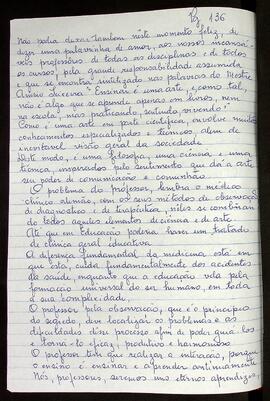 136
Não podia deixar também neste momento feliz, de
dizer uma palavrinha de amor, aos nossos incansá-
veis professores de todas as disciplinas e de todos
os cursos, pela grande responsabilidade assumida
e que se encontra sintetizado nas palavras do Mestre
Anísio Teixeira: "Ensinar é uma arte, e como tal,
não é algo que se aprende apenas em livros, nem
na escola, mas praticando, lutando, vivendo".
Como é uma arte em parte científica, envolve muitos
conhecimentos especializados e técnicos, além de
inevitável visão geral da sociedade.
Deste modo, é uma filosofia, uma ciência e uma
técnica, inspirados pelo sentimento que dá a arte
seu poder de comunicação e comunhão.
O problema do professor, lembra o médico
clínico alemão, com os seus métodos de observação
de diagnóstico e de terapêutica, neles se combinam
de todos aqueles elementos de ciência e de arte.
Até que em Educação poderia haver um tratado
de clínica geral educativa.
A diferença fundamental da medicina está em
que esta, cuida fundamentalmente dos acidentes
da saúde, enquanto que a educação vela pela
formação universal do ser humano, em toda
a sua complexidade.
O professor pela observação, que é o princípio
do segredo, deve localizar os problemas e as
dificuldades desse processo afim de poder guiá-los
e torná-lo eficaz, produtivo e harmonioso.
O professor tem que realizar a interação, porque
o ensino é ensinar e aprender continuamente.
Nós, professores, seremos uns eternos aprendizes,